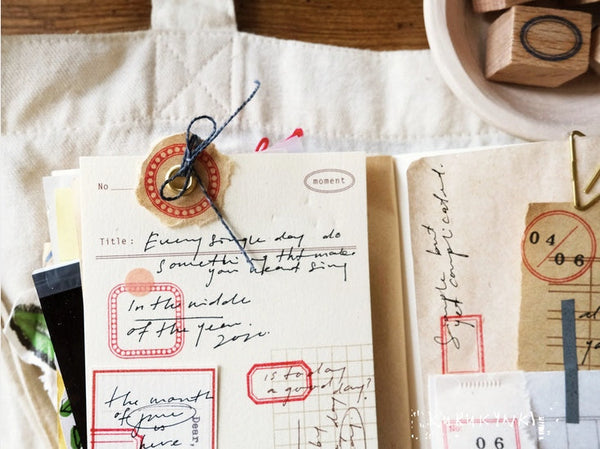 No
moment
Title: Every single day do
something tht make
you heart sing
In the middle
of the year.
2020.
is today
a good day?
the month
of june is
here
Dear,
by day
Simple but
yet complicated.
04/06
06